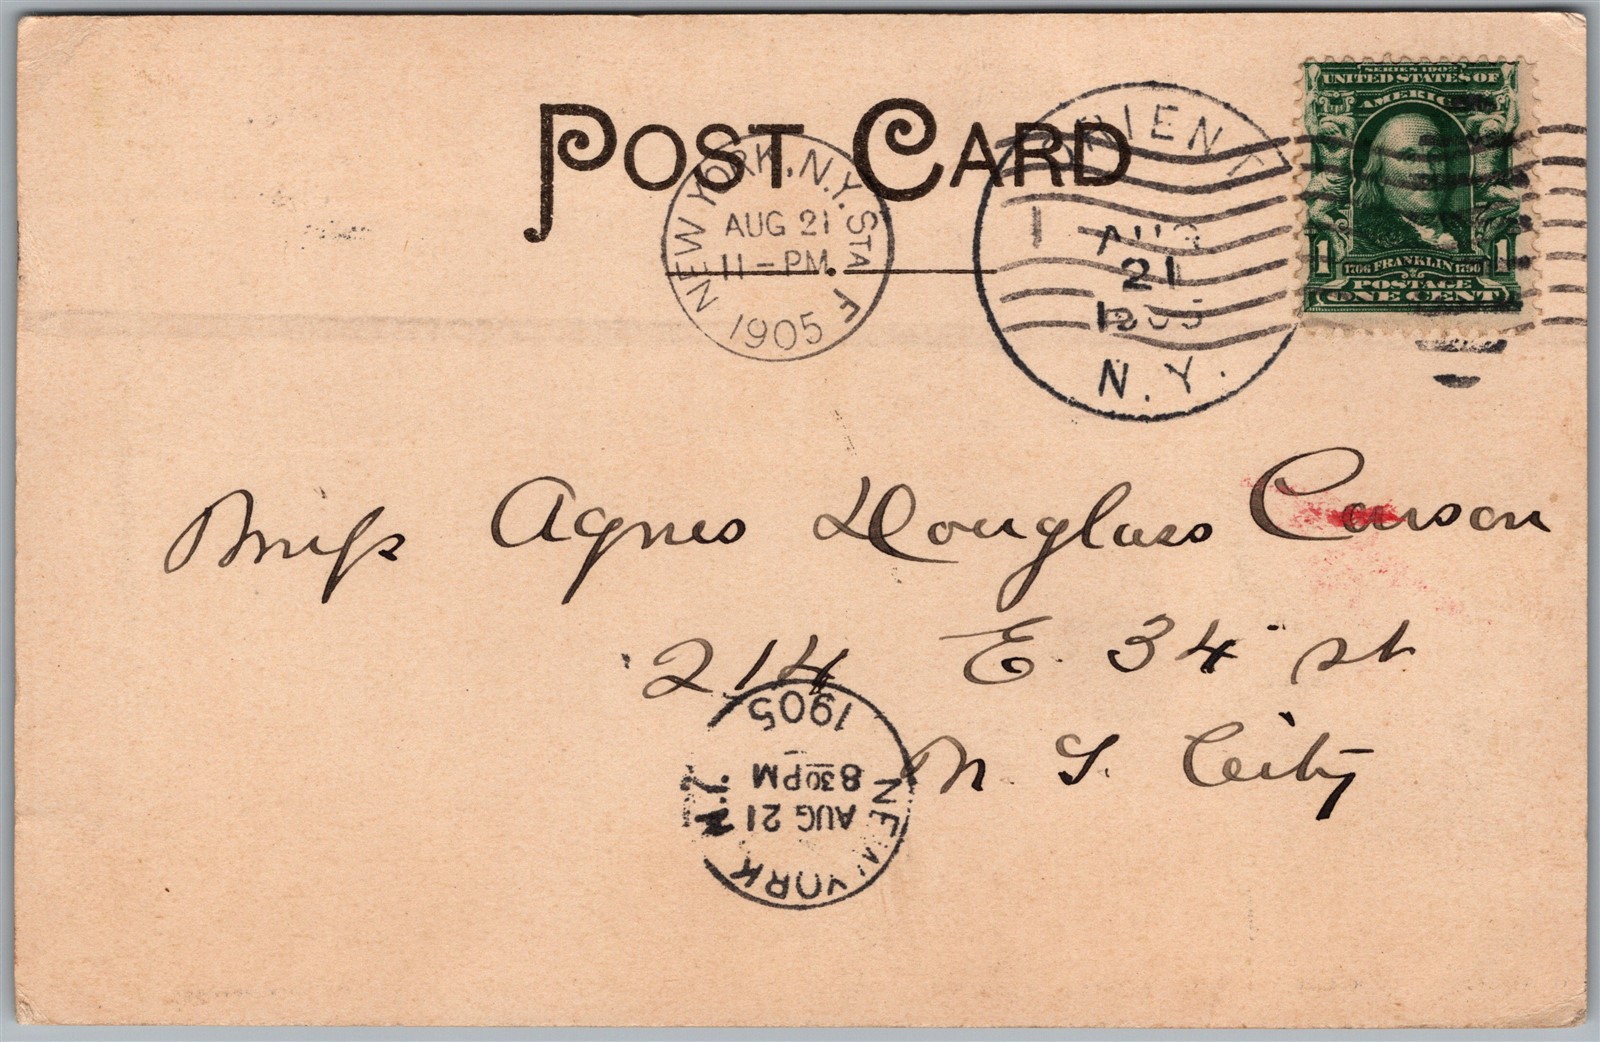 POST CARD
NEW YORK, N.Y. STA F
AUG 21
11-PM
1905
ORIENT
1
AUG
21
1905
N.Y.
SERIES 1902
UNITED STATES OF
AMERICA
1 1
1706 FRANKLIN 1790
POSTAGE
ONE CENT
Miss Agnes Douglass Carson
214 E. 34 st
N. Y. City
NEW YORK N.Y.
AUG 21
8 30 PM
1905